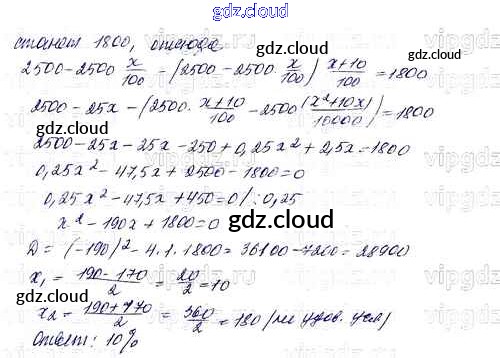 gdz.cloud
станет 1800, отсюда
gdz.cloud
2500-2500 x/100 - (2500-2500· x/100) x+10/100 = 1800
gdz.cloud
2500-25x-(2500· x+10/100 - 2500(x²+10x/10000))=1800
gdz.cloud
2500-25x-25x-250+0,25x²+2,5x=1800
0,25x²-47,5x+2500-1800=0
0,25x²-47,5x+450=0/:0,25
x²-190x+1800=0
gdz.cloud
D=(-190)²-4·1·1800=36100-7200=28900
x₁=190-170/2=20/2=10
gdz.cloud
x₂=190+170/2=360/2=180 (не удов. усл)
Ответ: 10%
gdz.cloud
vipgdz